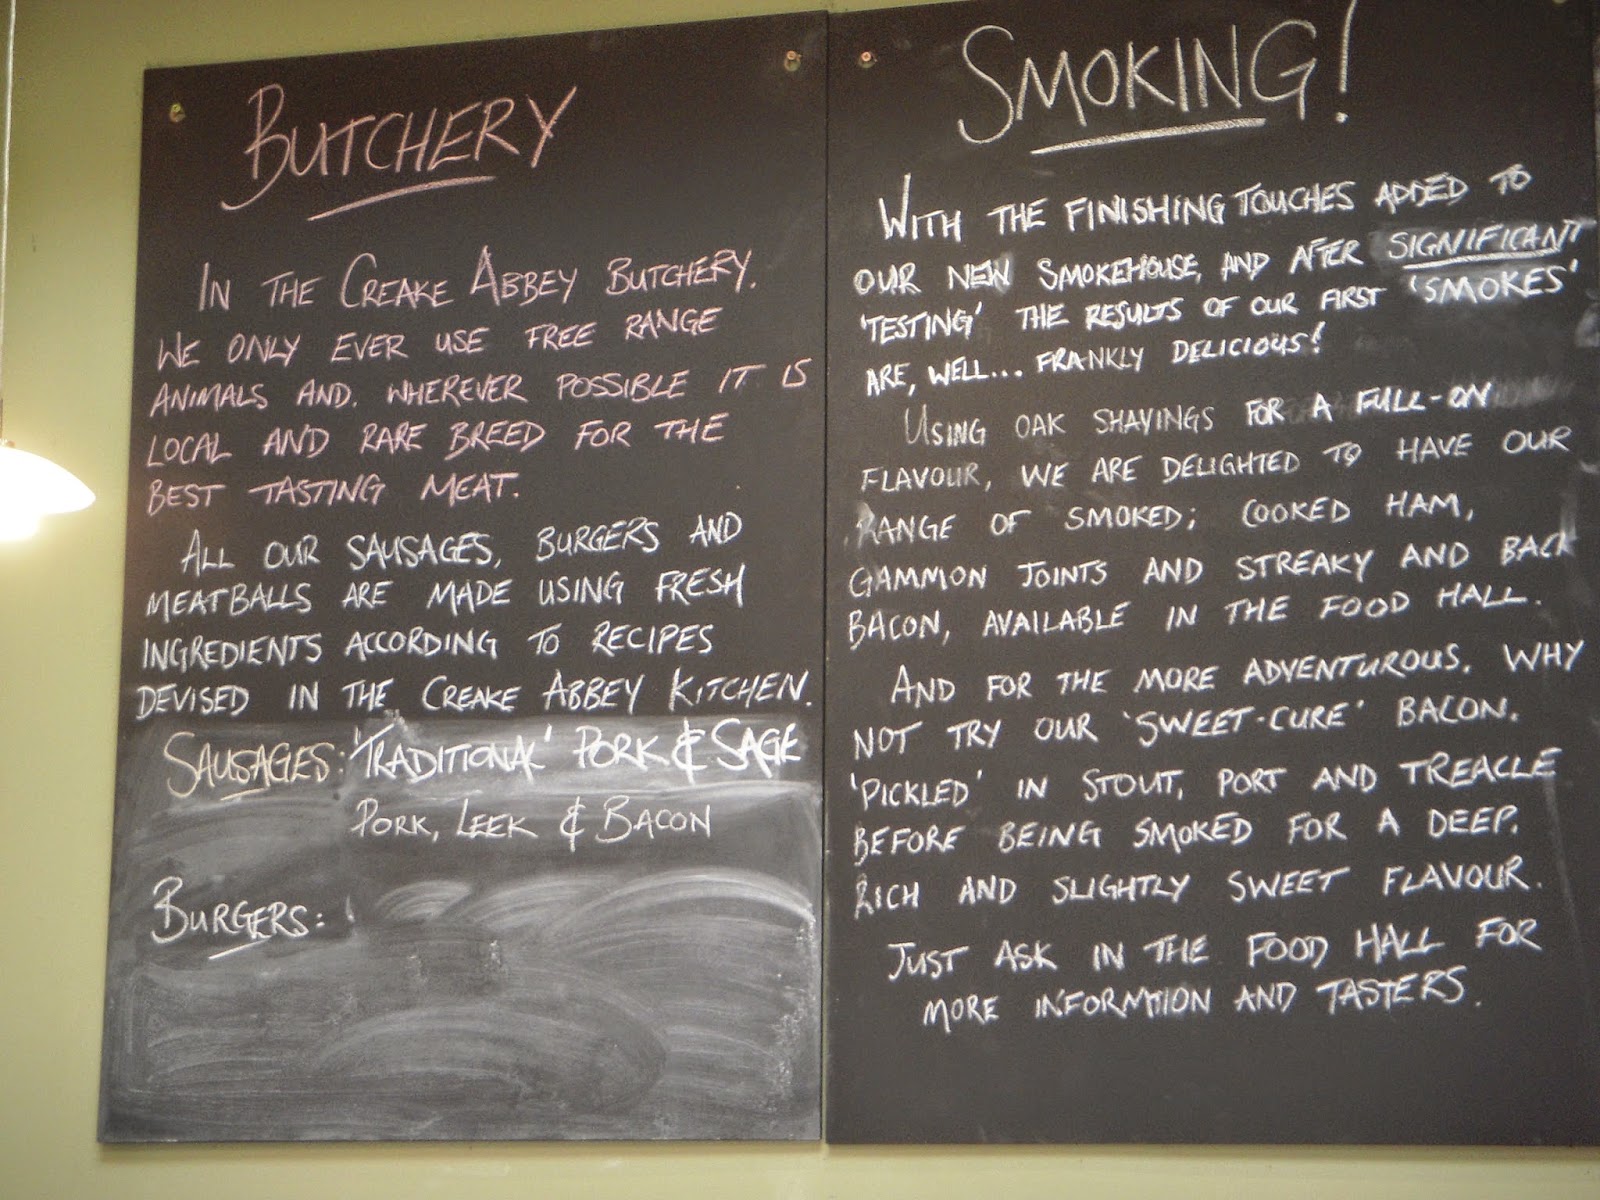 BUTCHERY
IN THE CREAKE ABBEY BUTCHERY.
WE ONLY EVER USE FREE RANGE
ANIMALS AND. WHEREVER POSSIBLE IT IS
LOCAL AND RARE BREED FOR THE
BEST TASTING MEAT.
ALL OUR SAUSAGES, BURGERS AND
MEATBALLS ARE MADE USING FRESH
INGREDIENTS ACCORDING TO RECIPES
DEVISED IN THE CREAKE ABBEY KITCHEN.
SAUSAGES: 'TRADITIONAL' PORK & SAGE
PORK, LEEK & BACON
BURGERS:
SMOKING!
WITH THE FINISHING TOUCHES ADDED TO
OUR NEW SMOKEHOUSE, AND AFTER SIGNIFICANT
'TESTING' THE RESULTS OF OUR FIRST 'SMOKES'
ARE, WELL... FRANKLY DELICIOUS!
USING OAK SHAVINGS FOR A FULL-ON
FLAVOUR, WE ARE DELIGHTED TO HAVE OUR
RANGE OF SMOKED; COOKED HAM,
GAMMON JOINTS AND STREAKY AND BACK
BACON, AVAILABLE IN THE FOOD HALL.
AND FOR THE MORE ADVENTUROUS. WHY
NOT TRY OUR 'SWEET-CURE' BACON.
'PICKLED' IN STOUT, PORT AND TREACLE
BEFORE BEING SMOKED FOR A DEEP.
RICH AND SLIGHTLY SWEET FLAVOUR.
JUST ASK IN THE FOOD HALL FOR
MORE INFORMATION AND TASTERS.